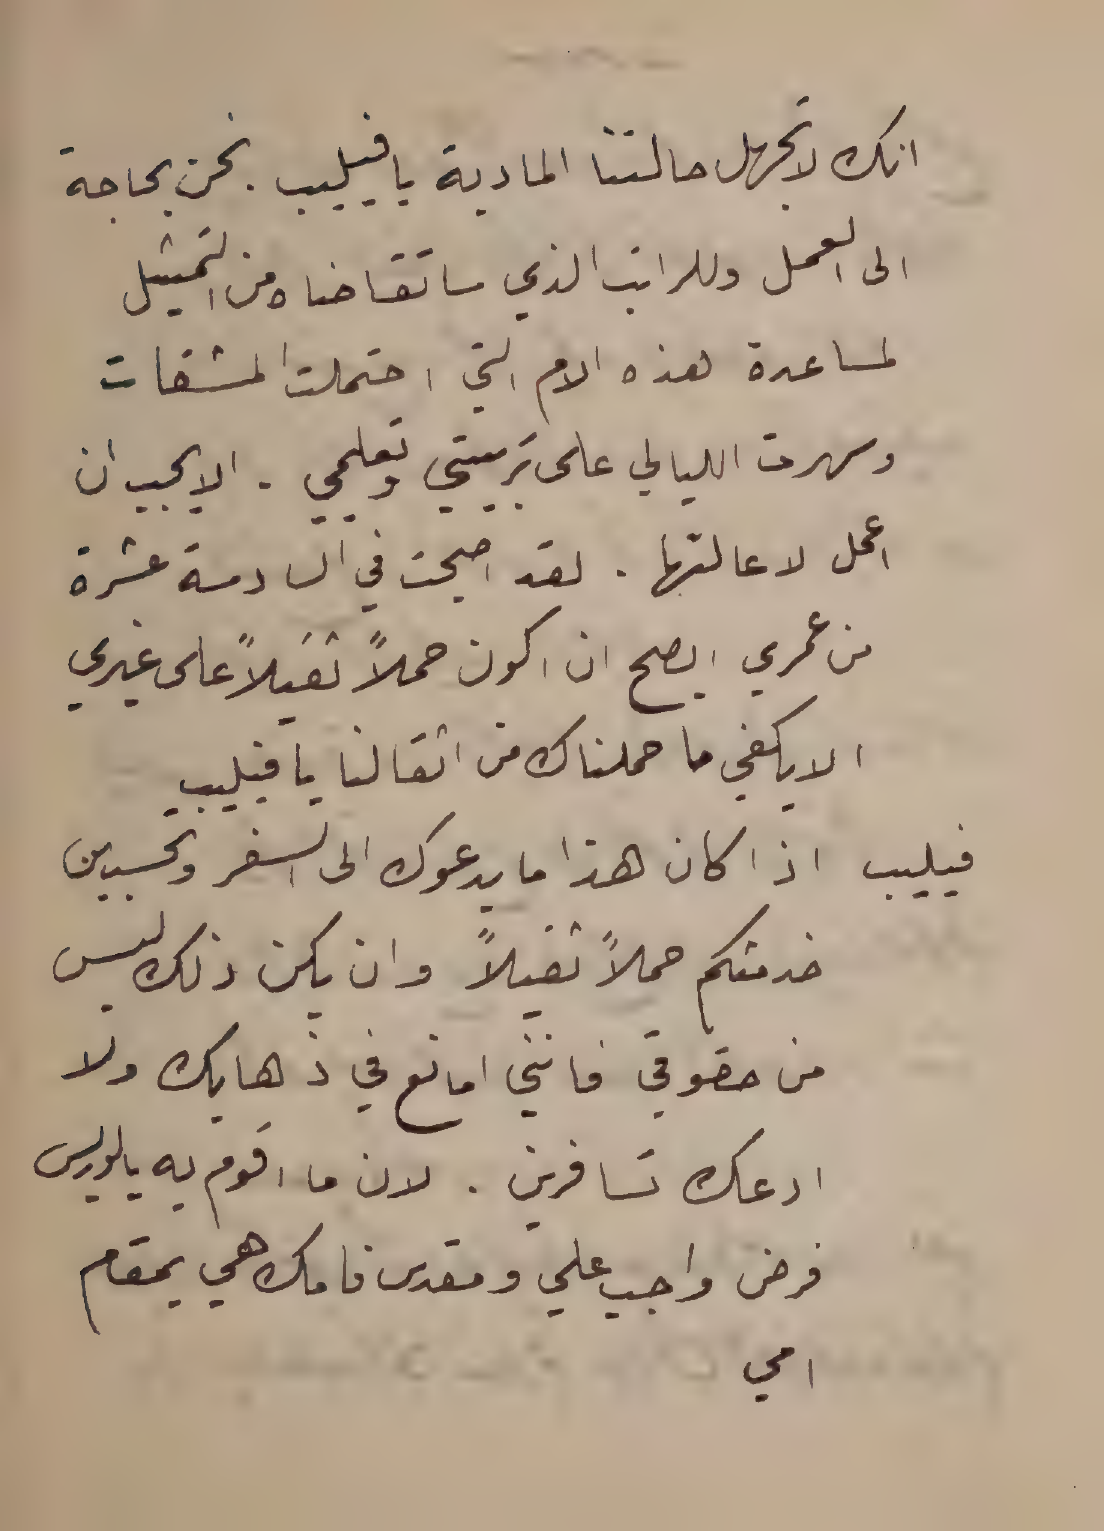 انك لا تجهل حالتنا المادية يا فيليب . نحن بحاجة
الى العمل وللراتب الذي ساتقاضاه من التمثيل
لمساعدة هذه الام التي احتملت المشقات
وسهرت الليالي على تربيتي وتعليمي . الا يجب ان
اعمل لاعالتها . لقد اصبحت في السادسة عشرة
من عمري ايصح ان اكون حملاً ثقيلاً على غيري
الا يكفي ما حملناك من اثقالنا يا فيليب
فيليب اذا كان هذا ما يدعوك الى السفر وتحسبين
خدمتكم حملاً ثقيلاً وان يكن ذلك ليس
من حقوقي فانني امانع في ذهابك ولا
ادعك تسافرين . لان ما اقوم به يا لوريس
فرض واجب علي ومقدس فامك هي بمقام
امي